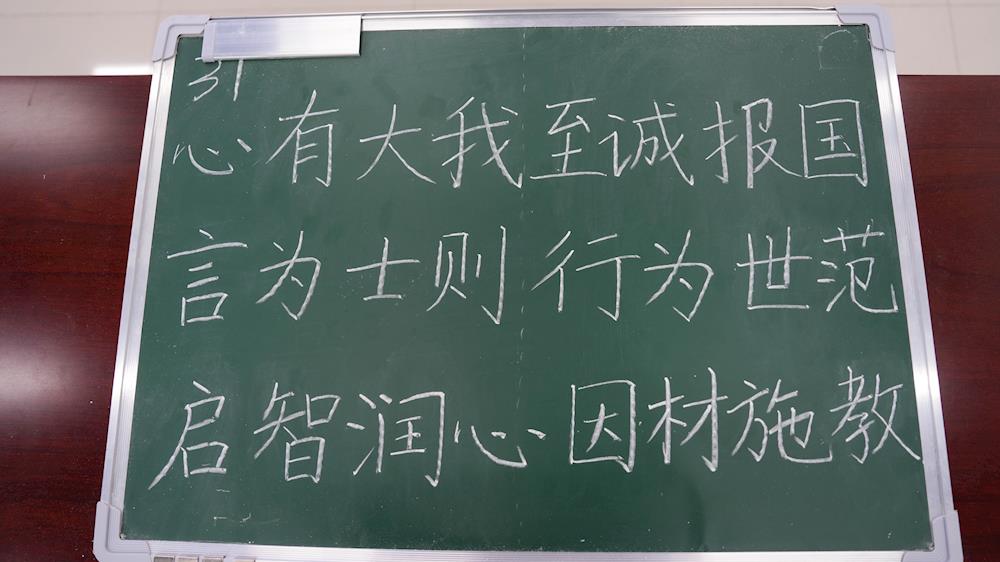 31
心有大我至诚报国
言为士则行为世范
启智润心因材施教